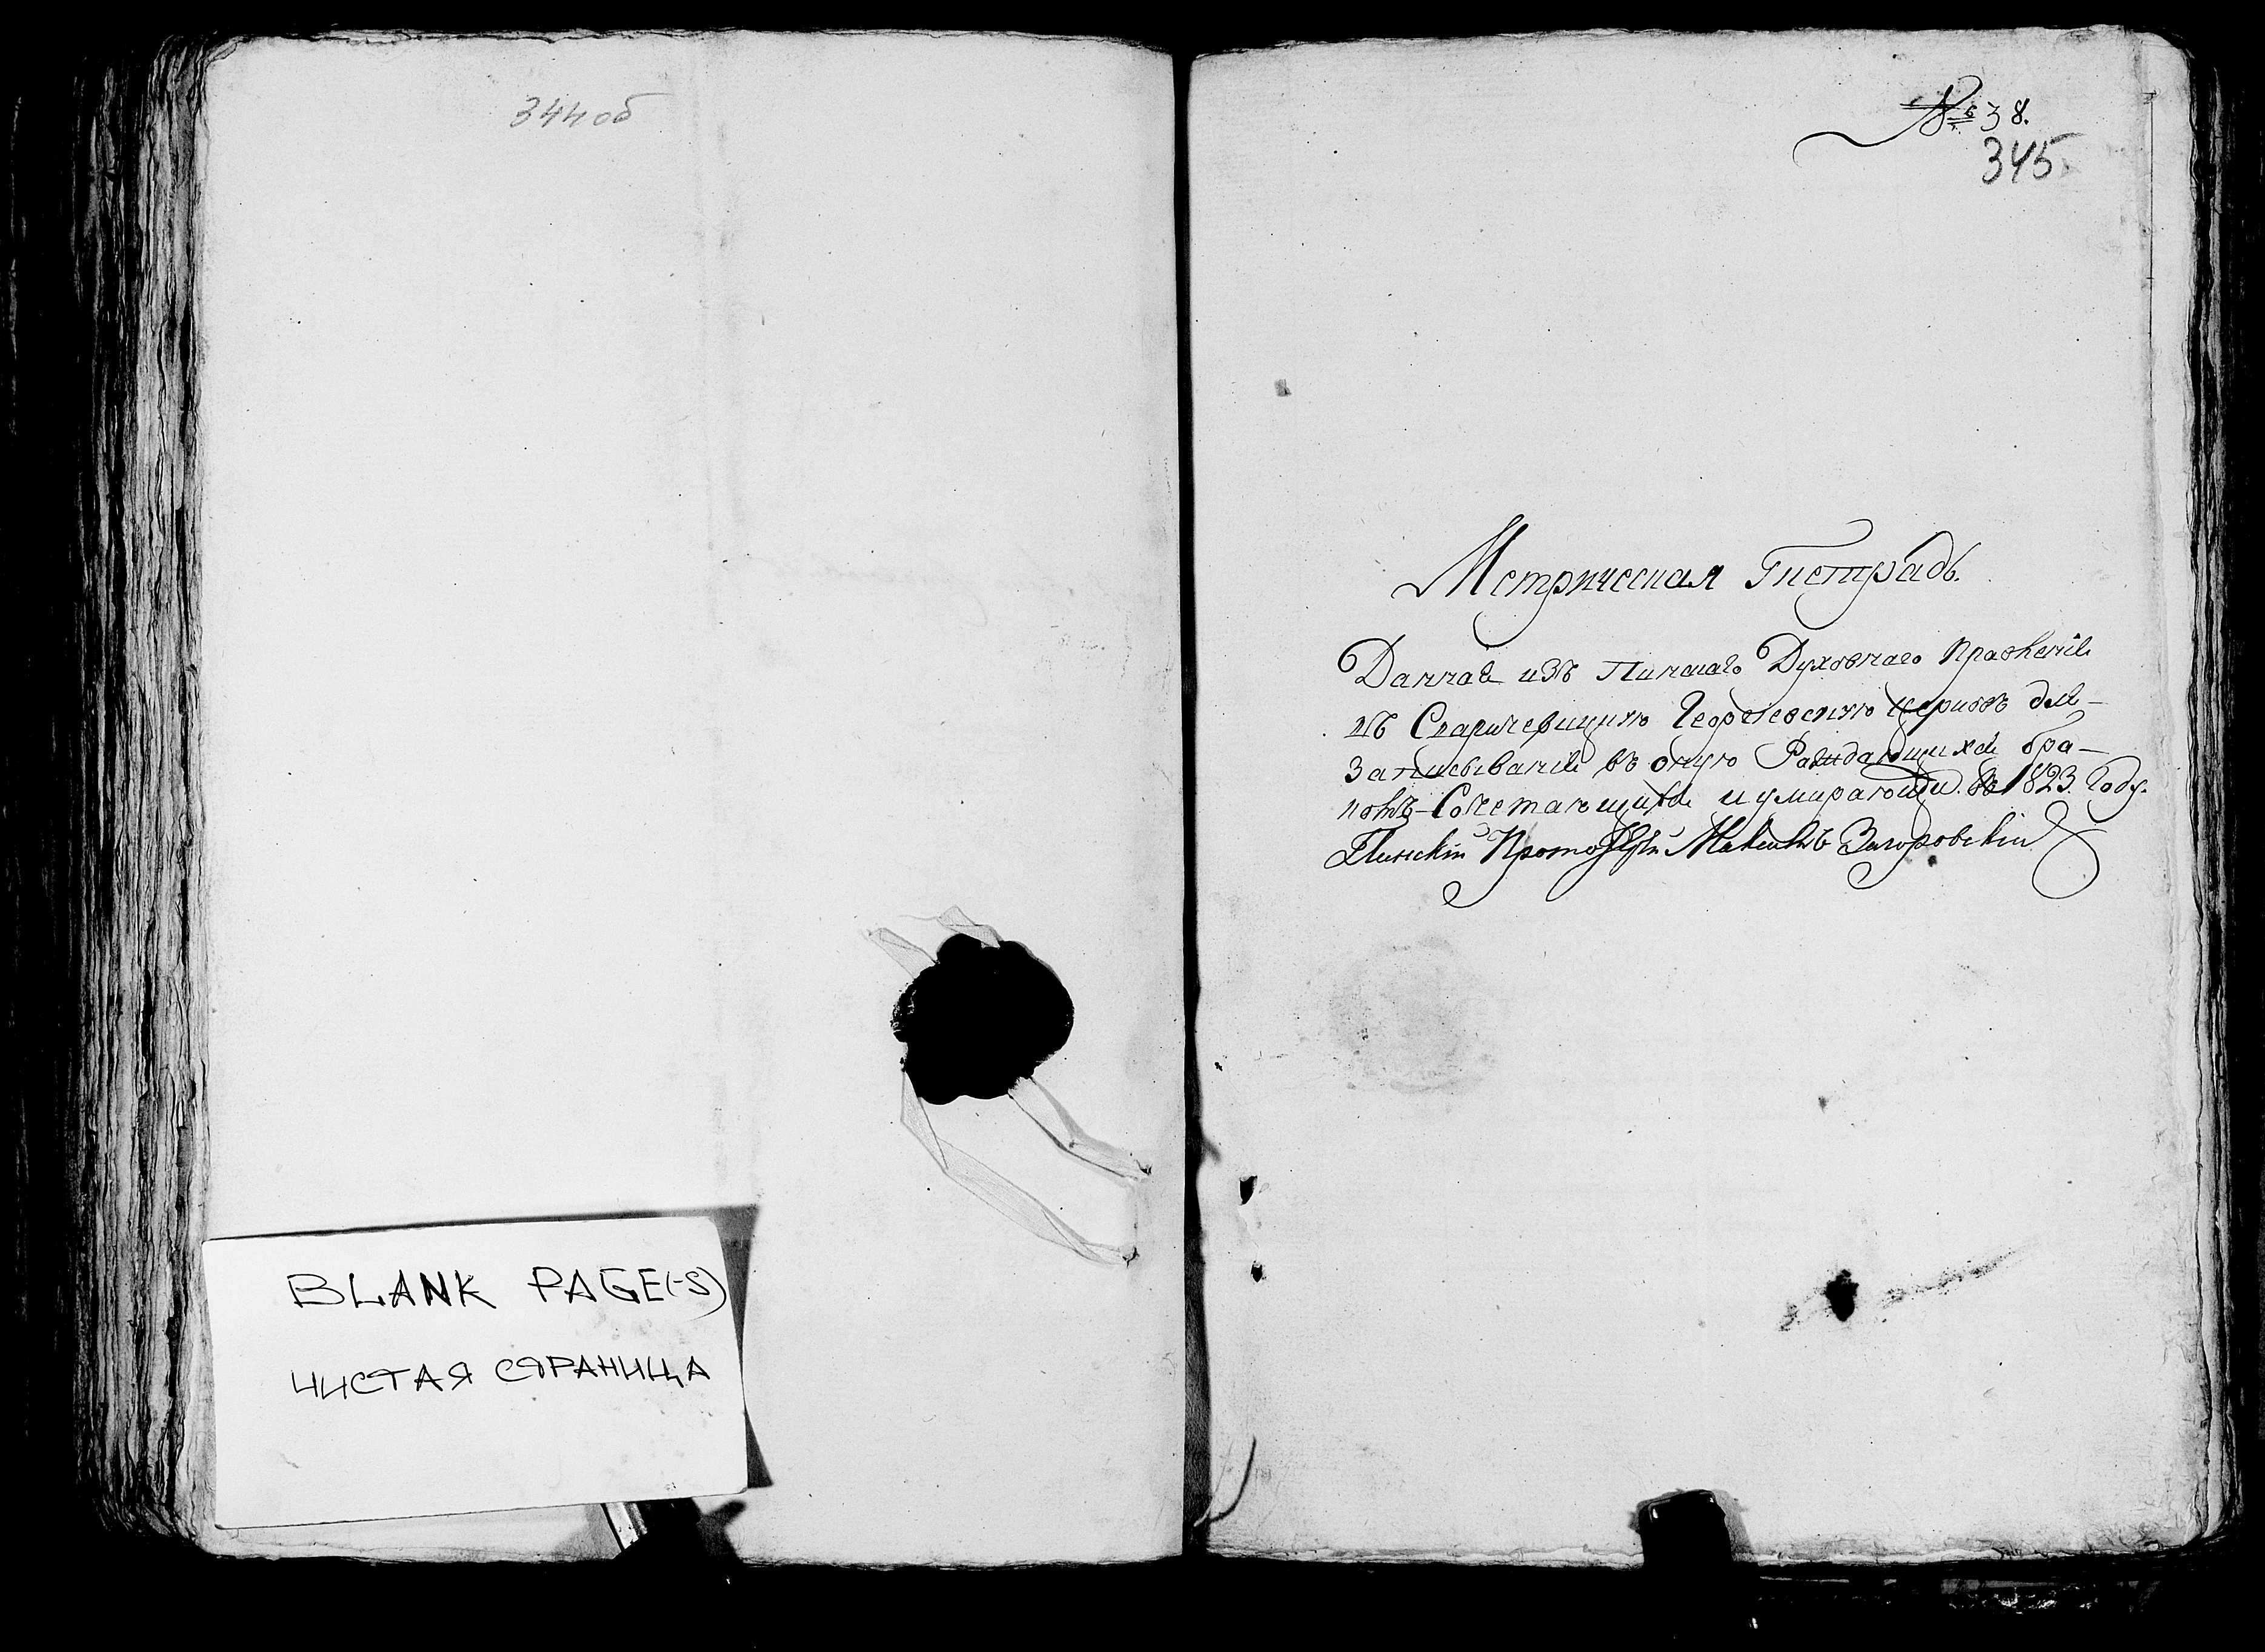 344об
BLANK PAGE(-S)
ЧИСТАЯ СТРАНИЦА
№ 38.
345
Метрическая Тетрадь.
Данная изъ Пинскаго Духовнаго Правленія
въ Спаричевицкую Георгіевскую церковь для
Записыванія въ оную Раждающихся бра-
комъ-Сочетающихся и умирающи въ 1823. Году.
Пинскій Загоровскій